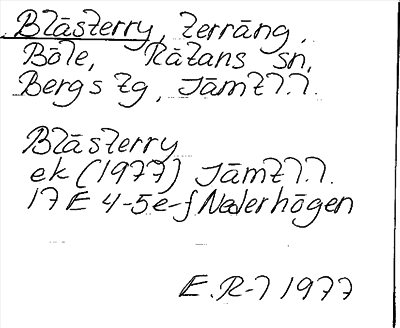 Blästerry, terräng,
Böle, Rätans sn,
Bergs tg, Jämtl.l.
Blästerry
ek (1977) Jämtl.l.
17E 4-5e-f Nederhögen
E.R-l 1977